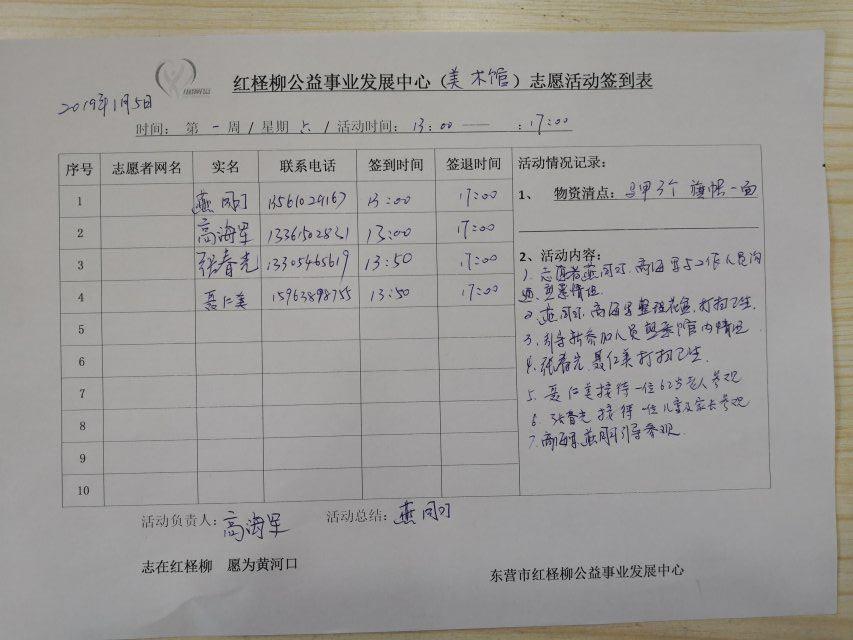 红柽柳公益事业发展中心（美术馆）志愿活动签到表
2019年1月5日
时间： 第 一 周 / 星期 六 / 活动时间： 13：00 —— ：17：00
序号 志愿者网名 实名 联系电话 签到时间 签退时间
1 燕 13561029167 13：00 17：00
2 高海军 13361502831 13：00 17：00
3 张春光 13305465619 13：50 17：00
4 聂仁美 15963898755 13：50 17：00
5
6
7
8
9
10
活动情况记录：
1、 物资清点：马甲3个 旗帜一面
2、活动内容：
1. 志愿者燕 高海军与工作人员沟
通，熟悉情况。
2. 燕 高海军整理花盆，打扫卫生
3. 引导新参加人员熟悉馆内情况
4. 张春光、聂仁美打扫卫生.
5. 聂仁美接待一位62岁老人参观
6. 张春光接待一位儿童及家长参观
7. 高海军、燕 引导参观
活动负责人：高海军 活动总结：燕
志在红柽柳 愿为黄河口
东营市红柽柳公益事业发展中心